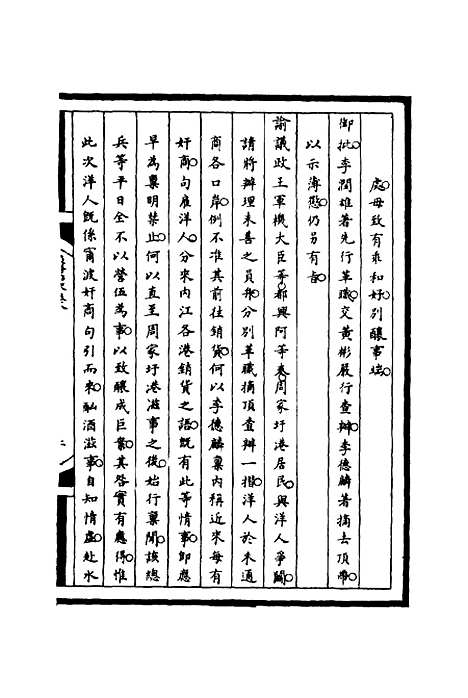 處毋致有乖和好別釀事端
御批李潤雄著先行革職交黃彬嚴行查辦李德麟著摘去頂帶
以示薄懲仍另有旨
諭議政王軍機大臣等都興阿等奏周家圩港居民與洋人爭鬭
請將辦理未善之員弁分別革職摘頂查辦一摺洋人於未通
商各口岸例不准其前往銷貨何以李德麟稟內稱近來每有
奸商句雇洋人分來內江各港銷貨之語既有此等情事即應
早為稟明禁止何以直至周家圩港滋事之後始行稟聞該總
兵等平日全不以營伍為事以致釀成巨案其咎實有應得惟
此次洋人既係甯波奸商句引而來酗酒滋事自知情虛赴水